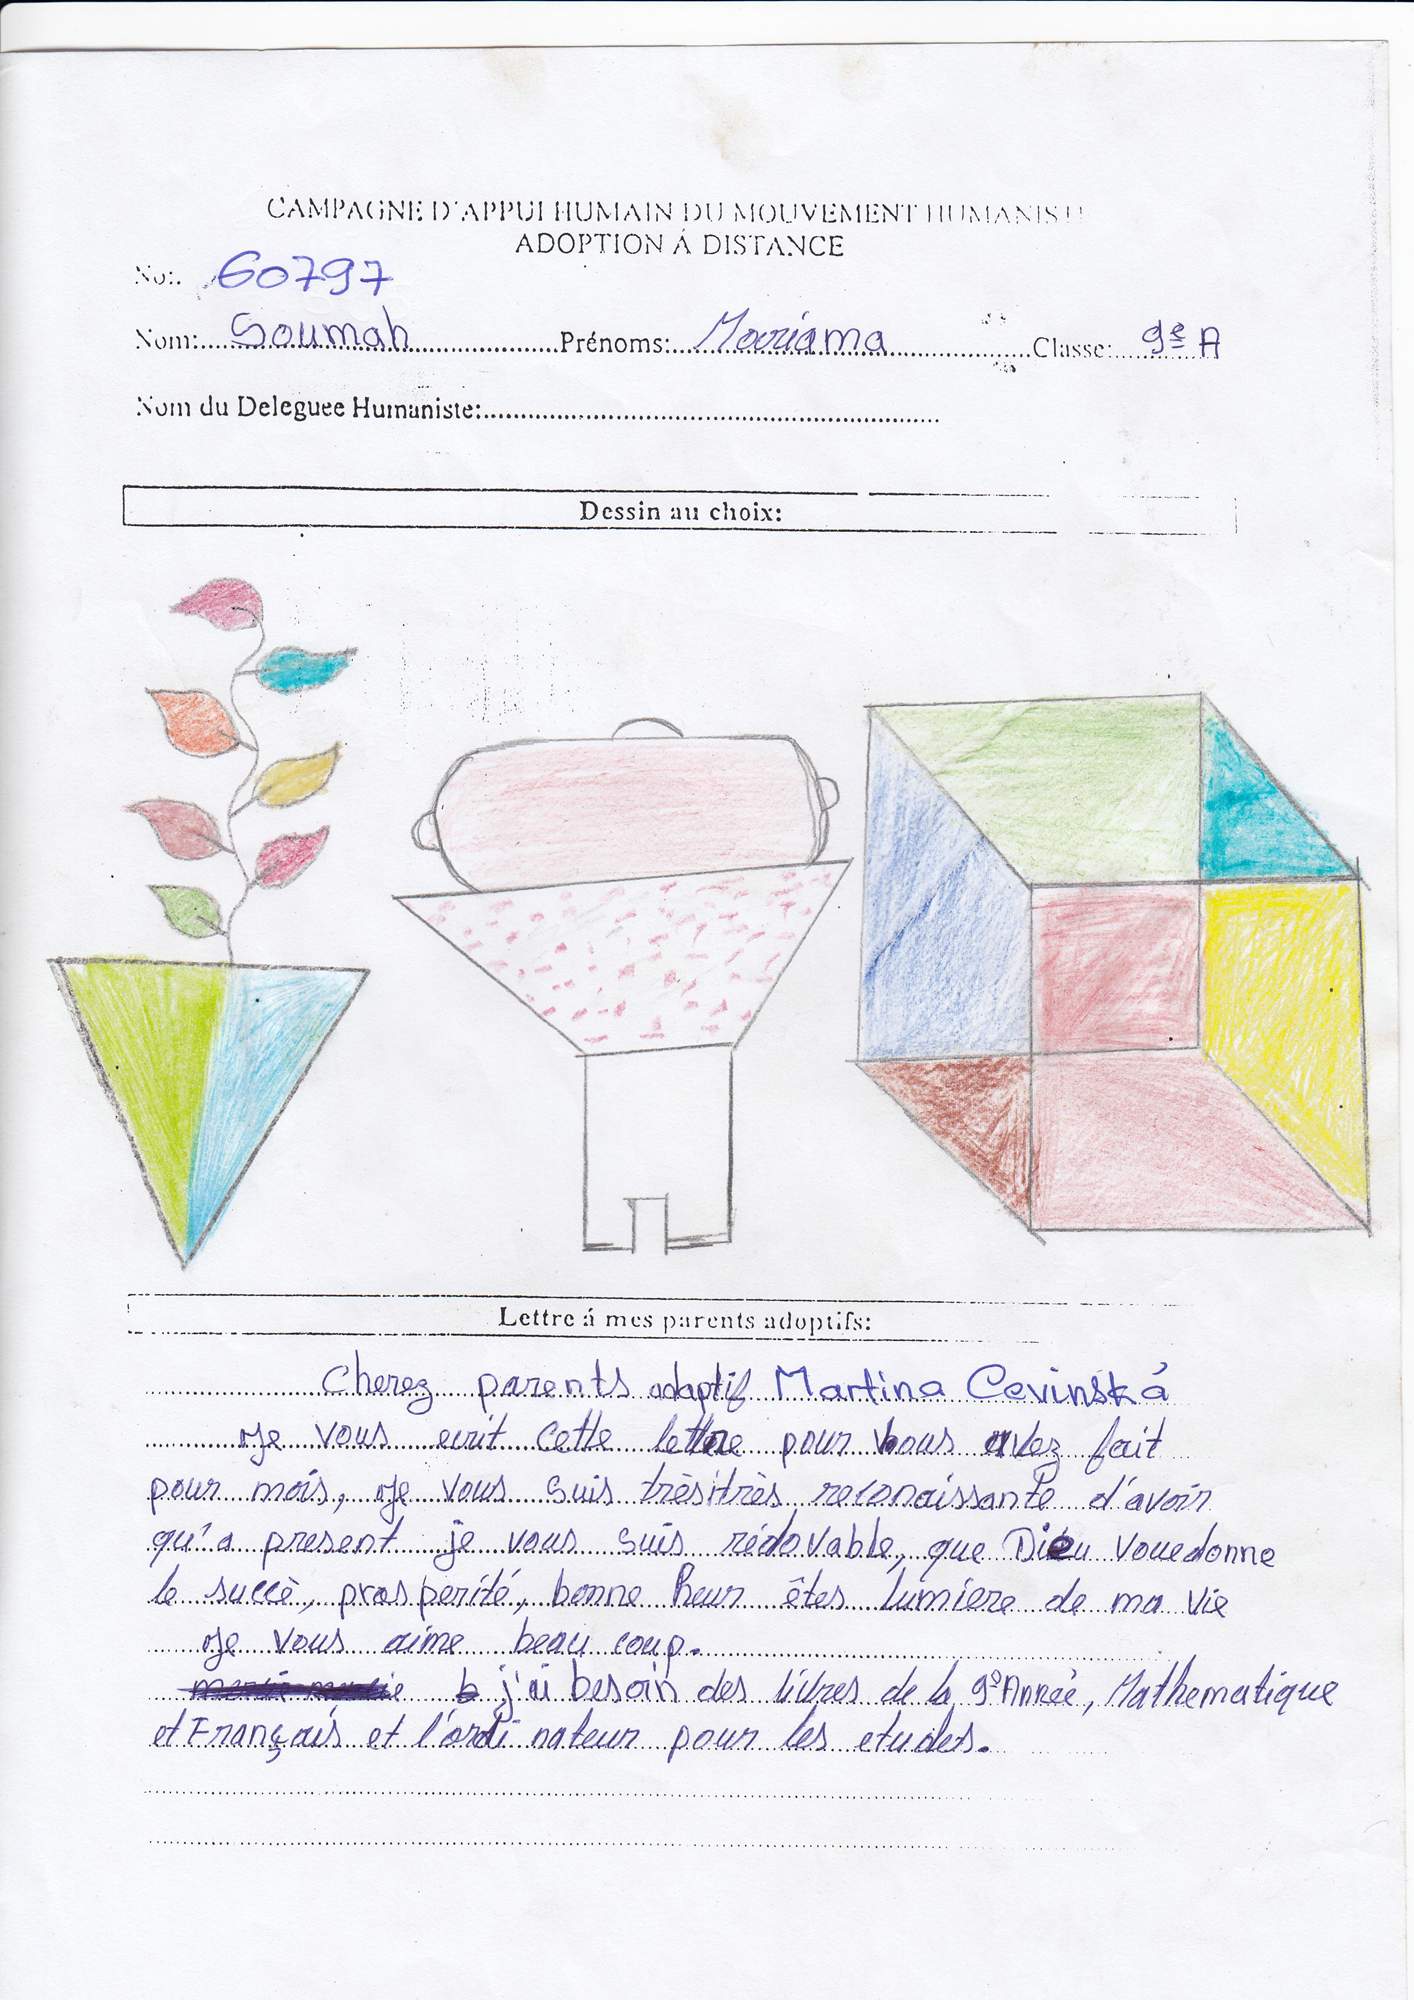 CAMPAGNE D'APPUI HUMAIN DU MOUVEMENT HUMANISTE
ADOPTION Á DISTANCE
No: 60797
Nom: Soumah Prénoms: Mariama Classe: 9e A
Nom du Deleguee Humaniste:
Dessin au choix:
Lettre á mes parents adoptifs:
Cherez parents adaptif Martina Cevinská
Je vous ecrit cette lettre pour vous avez fait
pour mois, Je vous suis très très reconaissante d'avoir
qu'a present je vous suis rédovable, que Dieu vouedonne
le succè, prosperité, bonne heur êtes lumiere de ma vie
Je vous aime beau coup.
j'ai besoin des livres de la 9e Année, Mathematique
et Français et l'ordi nateur pour les etudes.